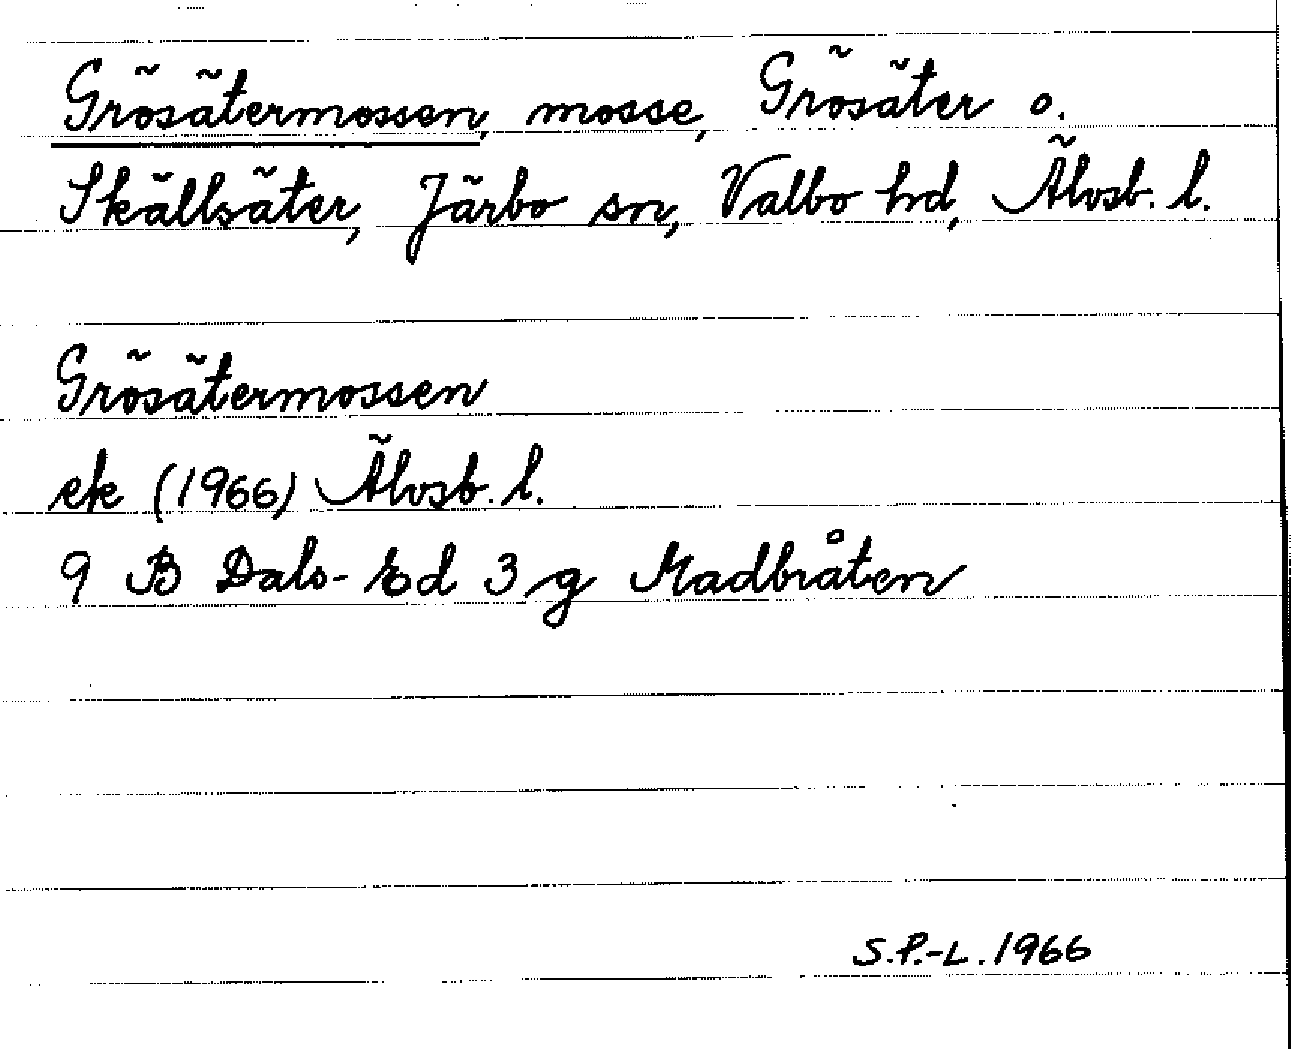 Grösätermossen, mosse, Grösäter o.
Skällsäter, Järbo sn, Valbo hd, Älvsb. l.
Grösätermossen
ek (1966) Älvsb. l.
9 B Dals-Ed 3 g Madbråten
S.P.-L. 1966